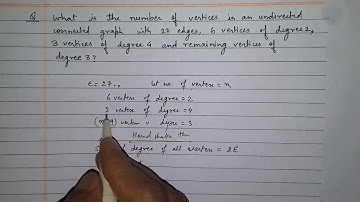 Q. What is the number of vertices in an undirected
connected graph with 27 edges, 6 vertices of degree 2,
3 vertices of degree 4 and remaining vertices of
degree 3?
e = 27.. let no. of vertex = n
6 vertex of degree = 2
3 vertex of degree = 4
vertex degree = 3
Hand shake
degree of all vertex = 2E